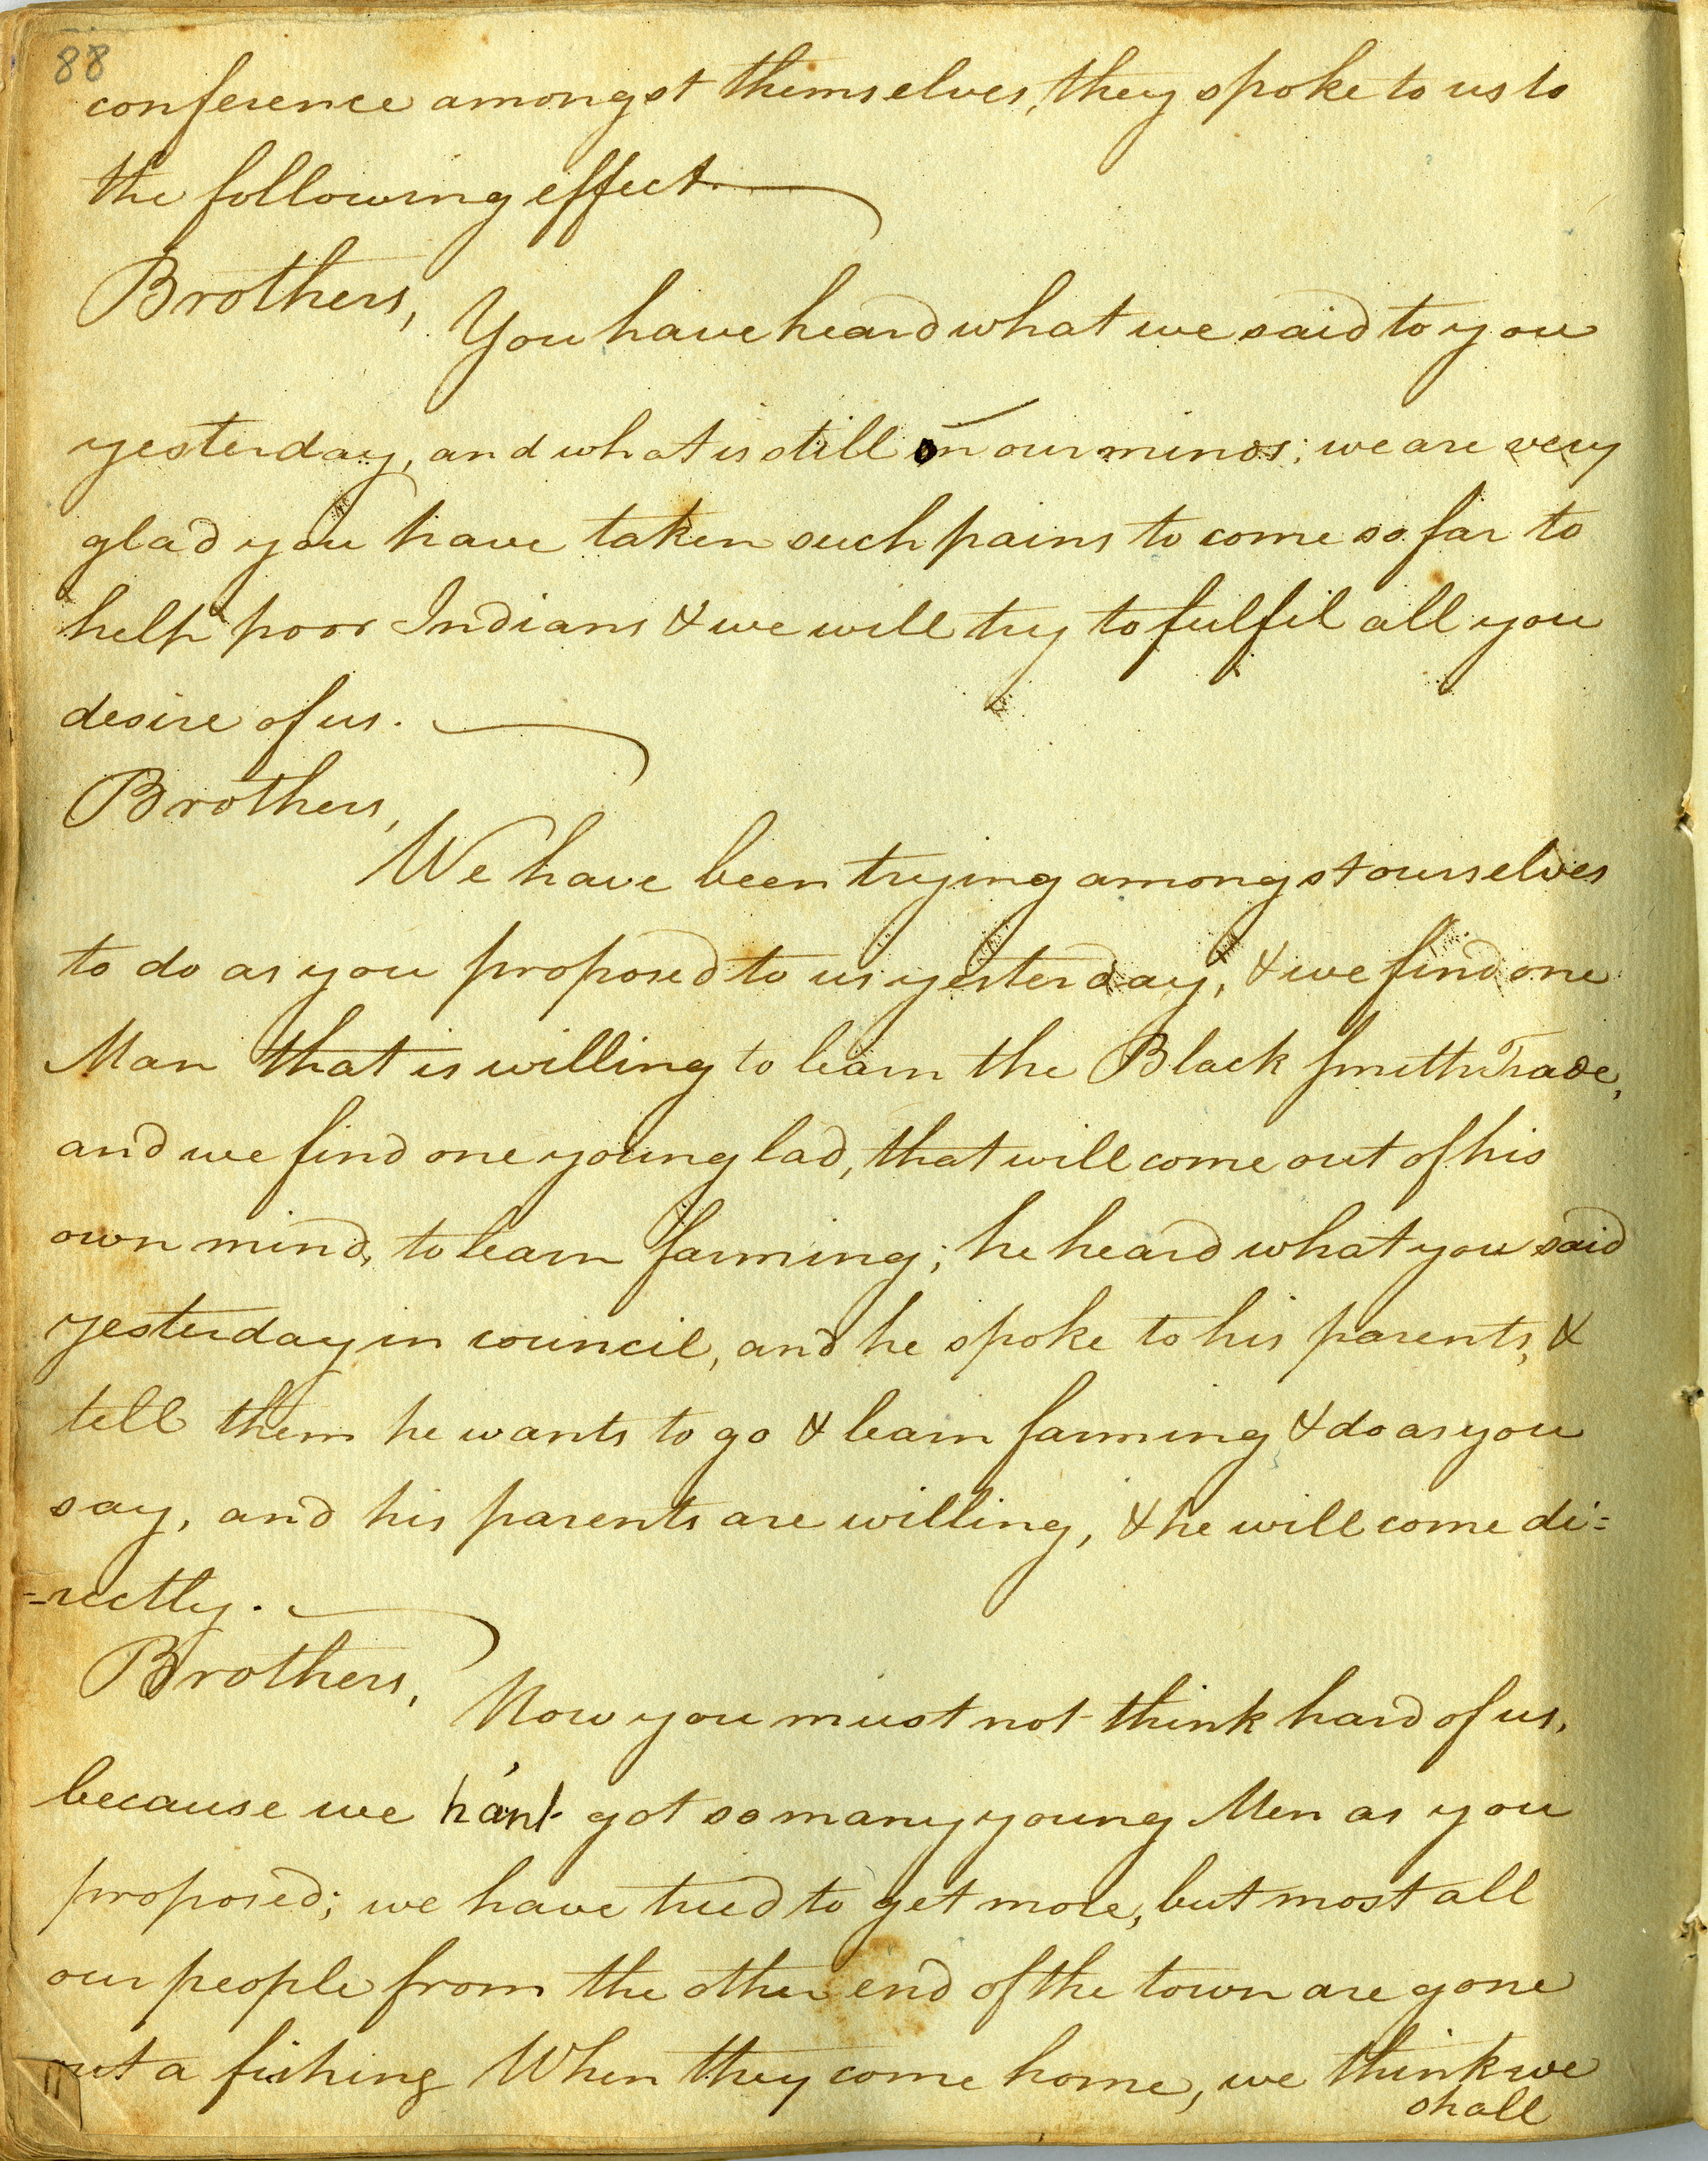 88
conference amongst themselves, they spoke to us to
the following effect.
Brothers,
You have heard what we said to you
yesterday, and what is still on our minds; we are very
glad you have taken such pains to come so far to
help poor Indians & we will try to fulfil all you
desire of us.
Brothers,
We have been trying amongst ourselves
to do as you proposed to us yesterday, & we find one
Man that is willing to learn the Black smith Trade,
and we find one young lad, that will come out of his
own mind, to learn farming; he heard what you said
yesterday in council, and he spoke to his parents, &
tell them he wants to go & learn farming & do as you
say, and his parents are willing, & he will come di=
=rectly.
Brothers,
Now you must not think hard of us,
because we han't got so many young Men as you
proposed; we have tried to get more, but most all
our people from the other end of the town are gone
out a fishing When they come home, we think we
shall